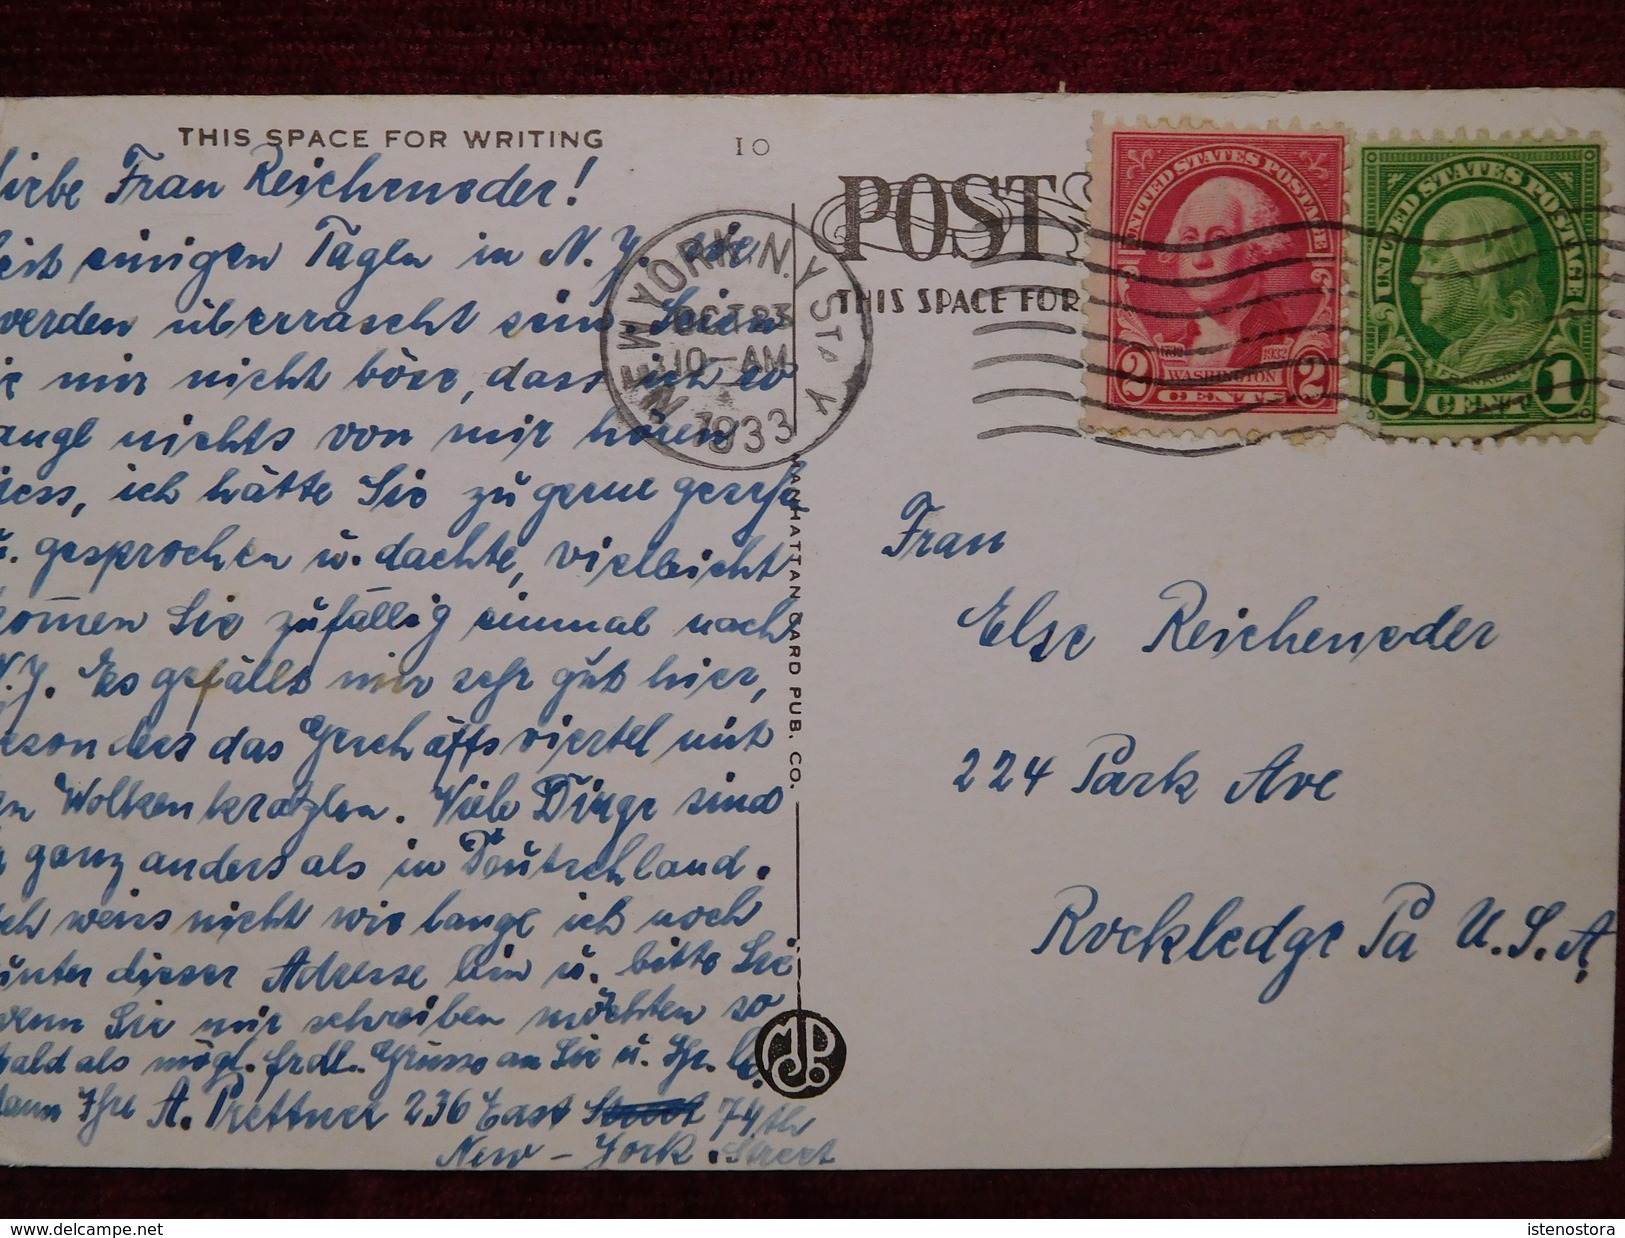 THIS SPACE FOR WRITING
10
Liebe Frau Reicheneder!
seit einigen Tagen in N.Y. Sie
werden überrascht sein. Seien
Sie mir nicht böse, dass ich so
lange nichts von mir hören
liess, ich hätte Sie zu gerne gesehn
u. gesprochen u. dachte, vielleicht
kom̄en Sie zufällig einmal nach
N.Y. Es gefällt mir sehr gut hier,
besonders das Geschäftsviertel mit
den Wolkenkratzlen. Viele Dinge sind
ganz anders als in Deutschland.
Ich weiss nicht wie lange ich noch
unter dieser Adresse bin u. bitte Sie
wenn Sie mir schreiben möchten so
bald als mögl. frdl. Grüsse an Sie u. Ihr. l.
Mann Ihre A. Prettner 236 East 74th
New-York. Street
NEW YORK, N.Y. STA Y
OCT 23
10-AM
1933
POST
THIS SPACE FOR
UNITED STATES POSTAGE
1732 1932
WASHINGTON
2 CENTS 2
UNITED STATES POSTAGE
FRANKLIN
1 CENT 1
MANHATTAN CARD PUB. CO.
Frau
Else Reicheneder
224 Park Ave
Rockledge Pa U.S.A.
delcampe.net
istenostora